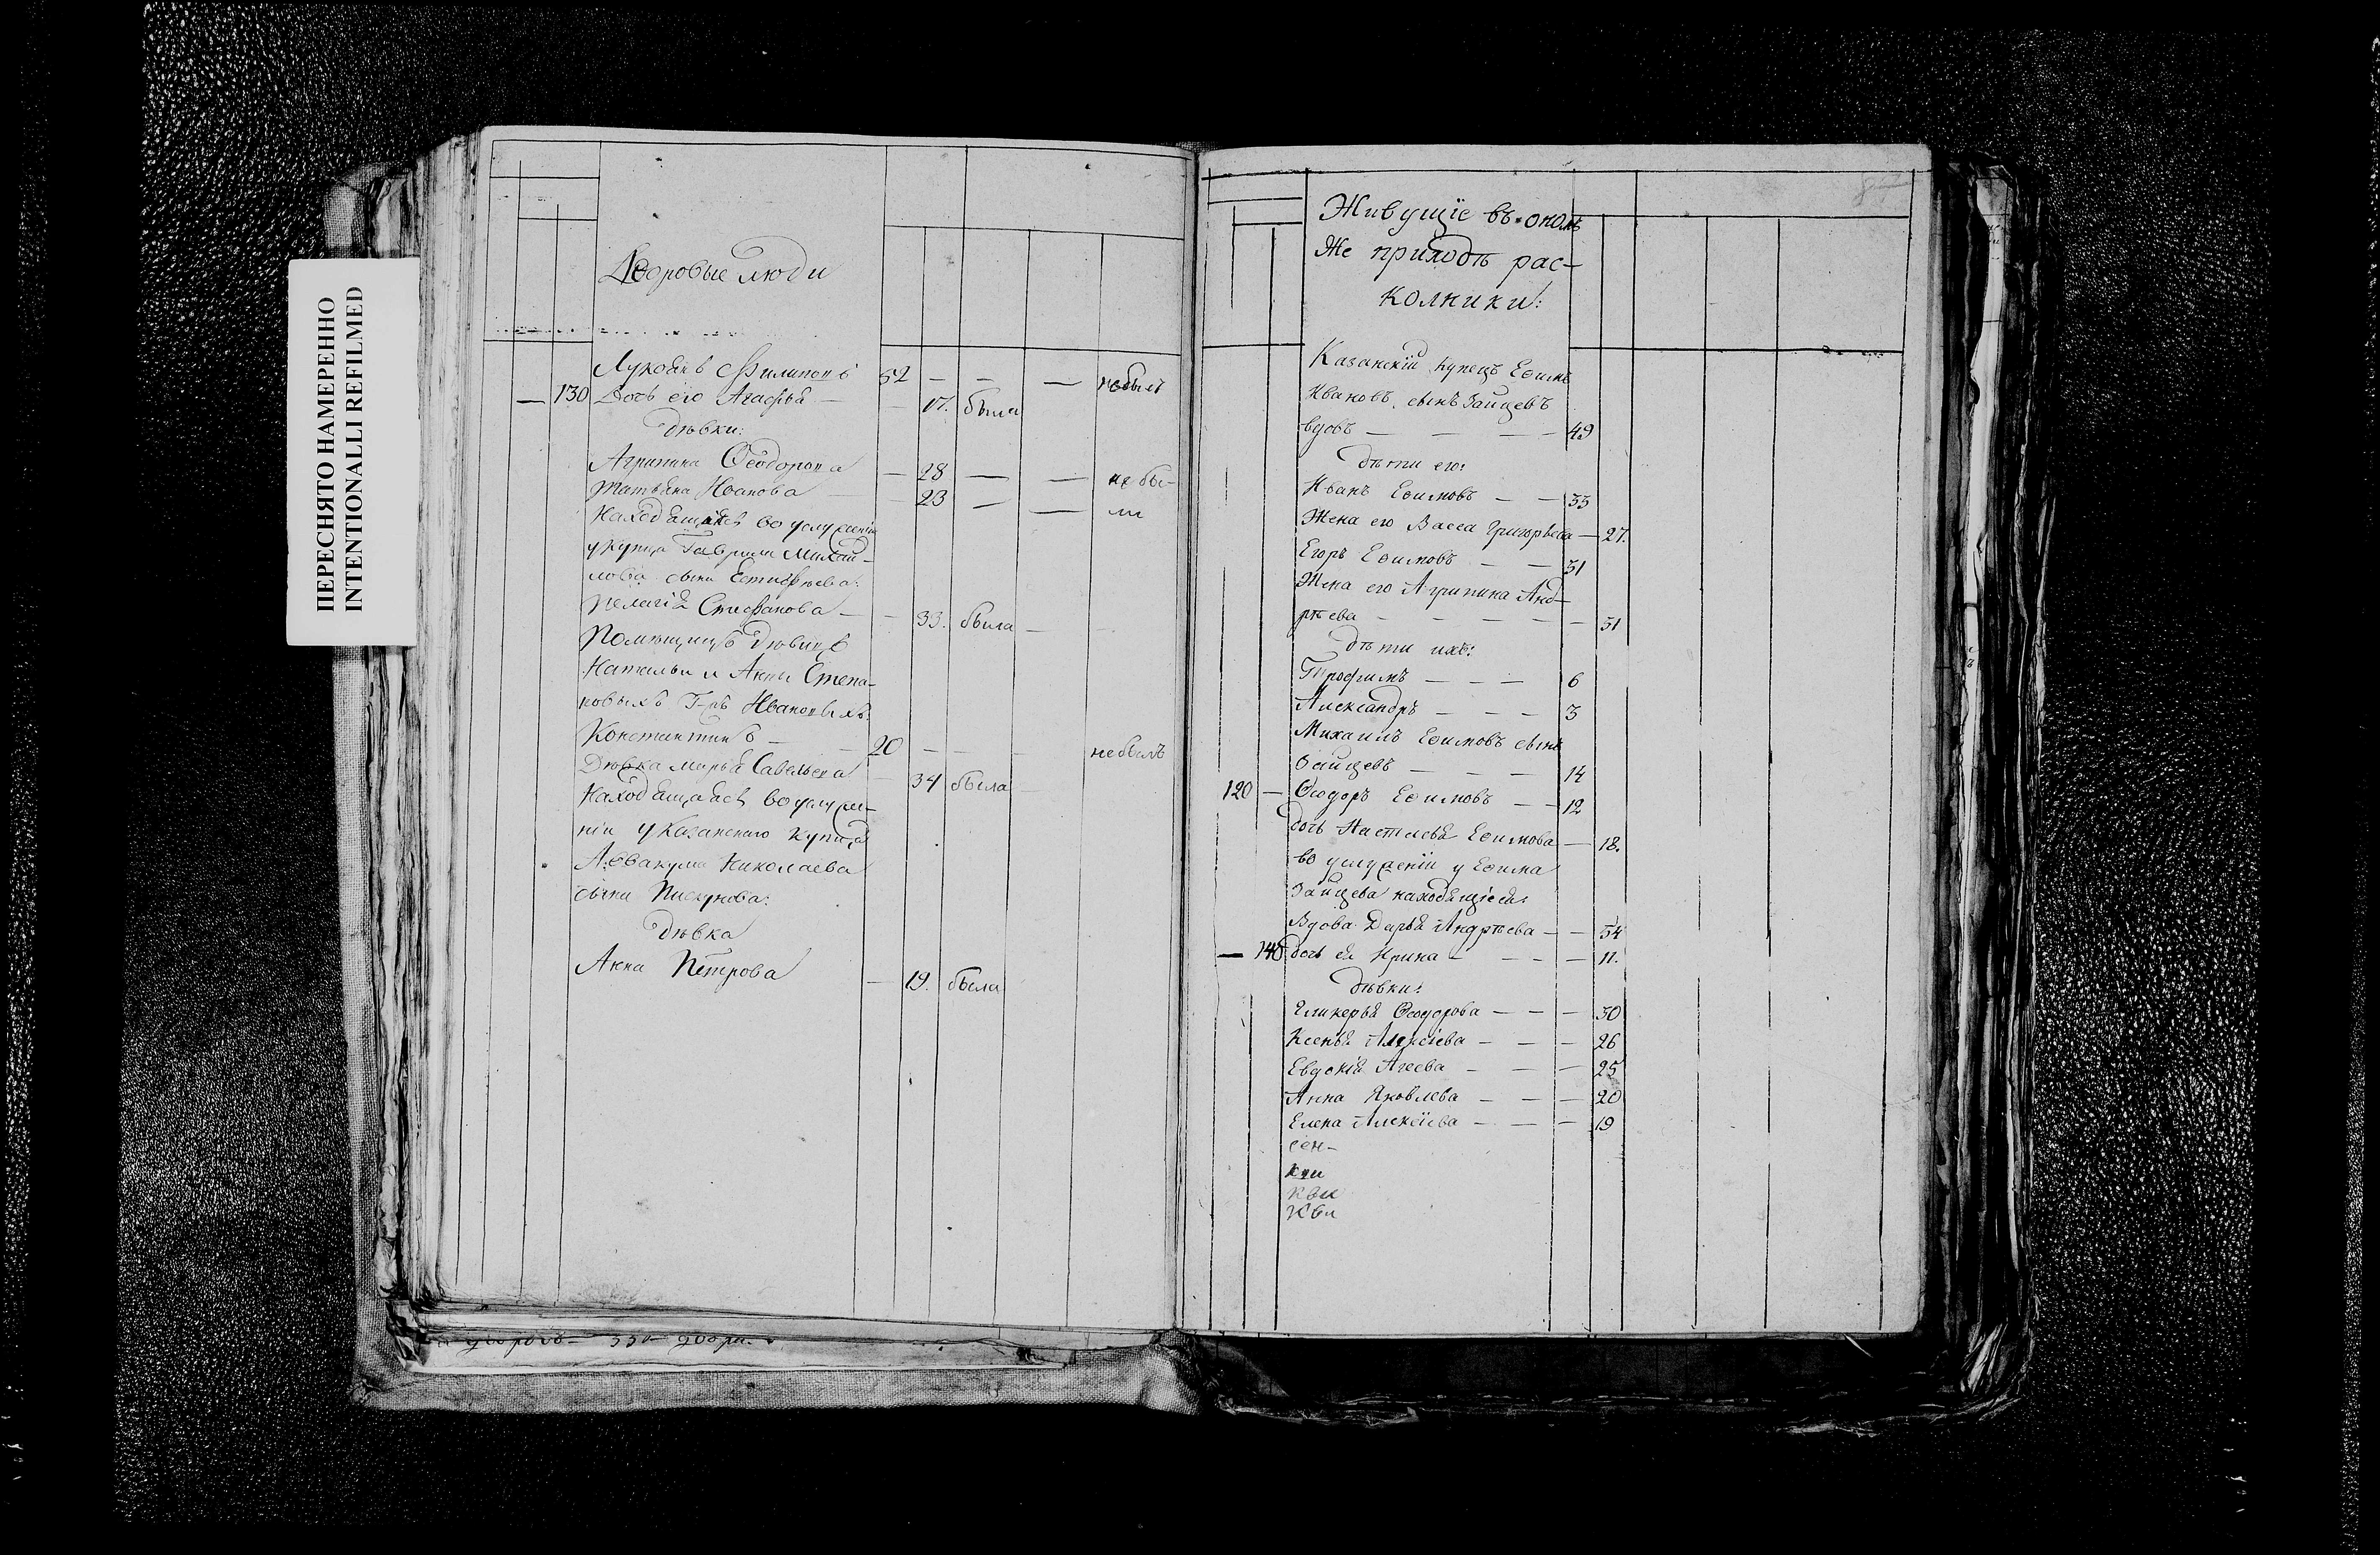 ПЕРЕСНЯТО НАМЕРЕННО
INTENTIONALLI REFILMED
Дворовые люди
Лукоянъ Филиповъ 52 — — — небылъ
— 130 Дочь его Агафья — — 17. была
дѣвки:
Агрипина Ѳеодорова — 28 — — не бы-
Татьяна Иванова — — 23 — — ли
Находящаяся во услуженіи
у купца Гаврила Михай-
лова сына Естифѣева:
Пелагія Стефанова — — 33. была —
Помѣщицъ дѣвицъ
Натальи и Анны Степа-
новыхъ Г-жъ Ивановыхъ:
Константинъ — — 20 — — — небылъ
Дѣвка Марья Савельева — 34 была
Находящаяся во услуже-
ніи у Казанскаго купца
Аввакума Николаева
сына Пискунова:
дѣвка
Анна Петрова — 19. была
Живущіе въ ономъ
же приходѣ рас-
колники:
Казанскій купецъ Ефимъ
Ивановъ сынъ Зайцевъ
вдовъ — — — — 49
дѣти его:
Иванъ Ефимовъ — — 33
Жена его Васса Григорьева — 27.
Егоръ Ефимовъ — — 31
Жена его Агрипина Анд-
рѣева — — — — — 31
дѣти ихъ:
Трофимъ — — — 6
Александръ — — — 3
Михаилъ Ефимовъ сынъ
Зайцевъ — — — 14
120 — Ѳеодоръ Ефимовъ — — 12
дочь Настасья Ефимова — 18.
во услуженіи у Ефима
Зайцева находящіеся:
Вдова Дарья Андрѣева — — 54
— 140 дочь ея Ирина — — — — 11.
дѣвки:
Гликерья Ѳеодорова — — — 30
Ксенья Алексіева — — — 26
Евдокія Агеева — — — 25
Анна Яковлева — — — 20
Елена Алексіева — — — 19